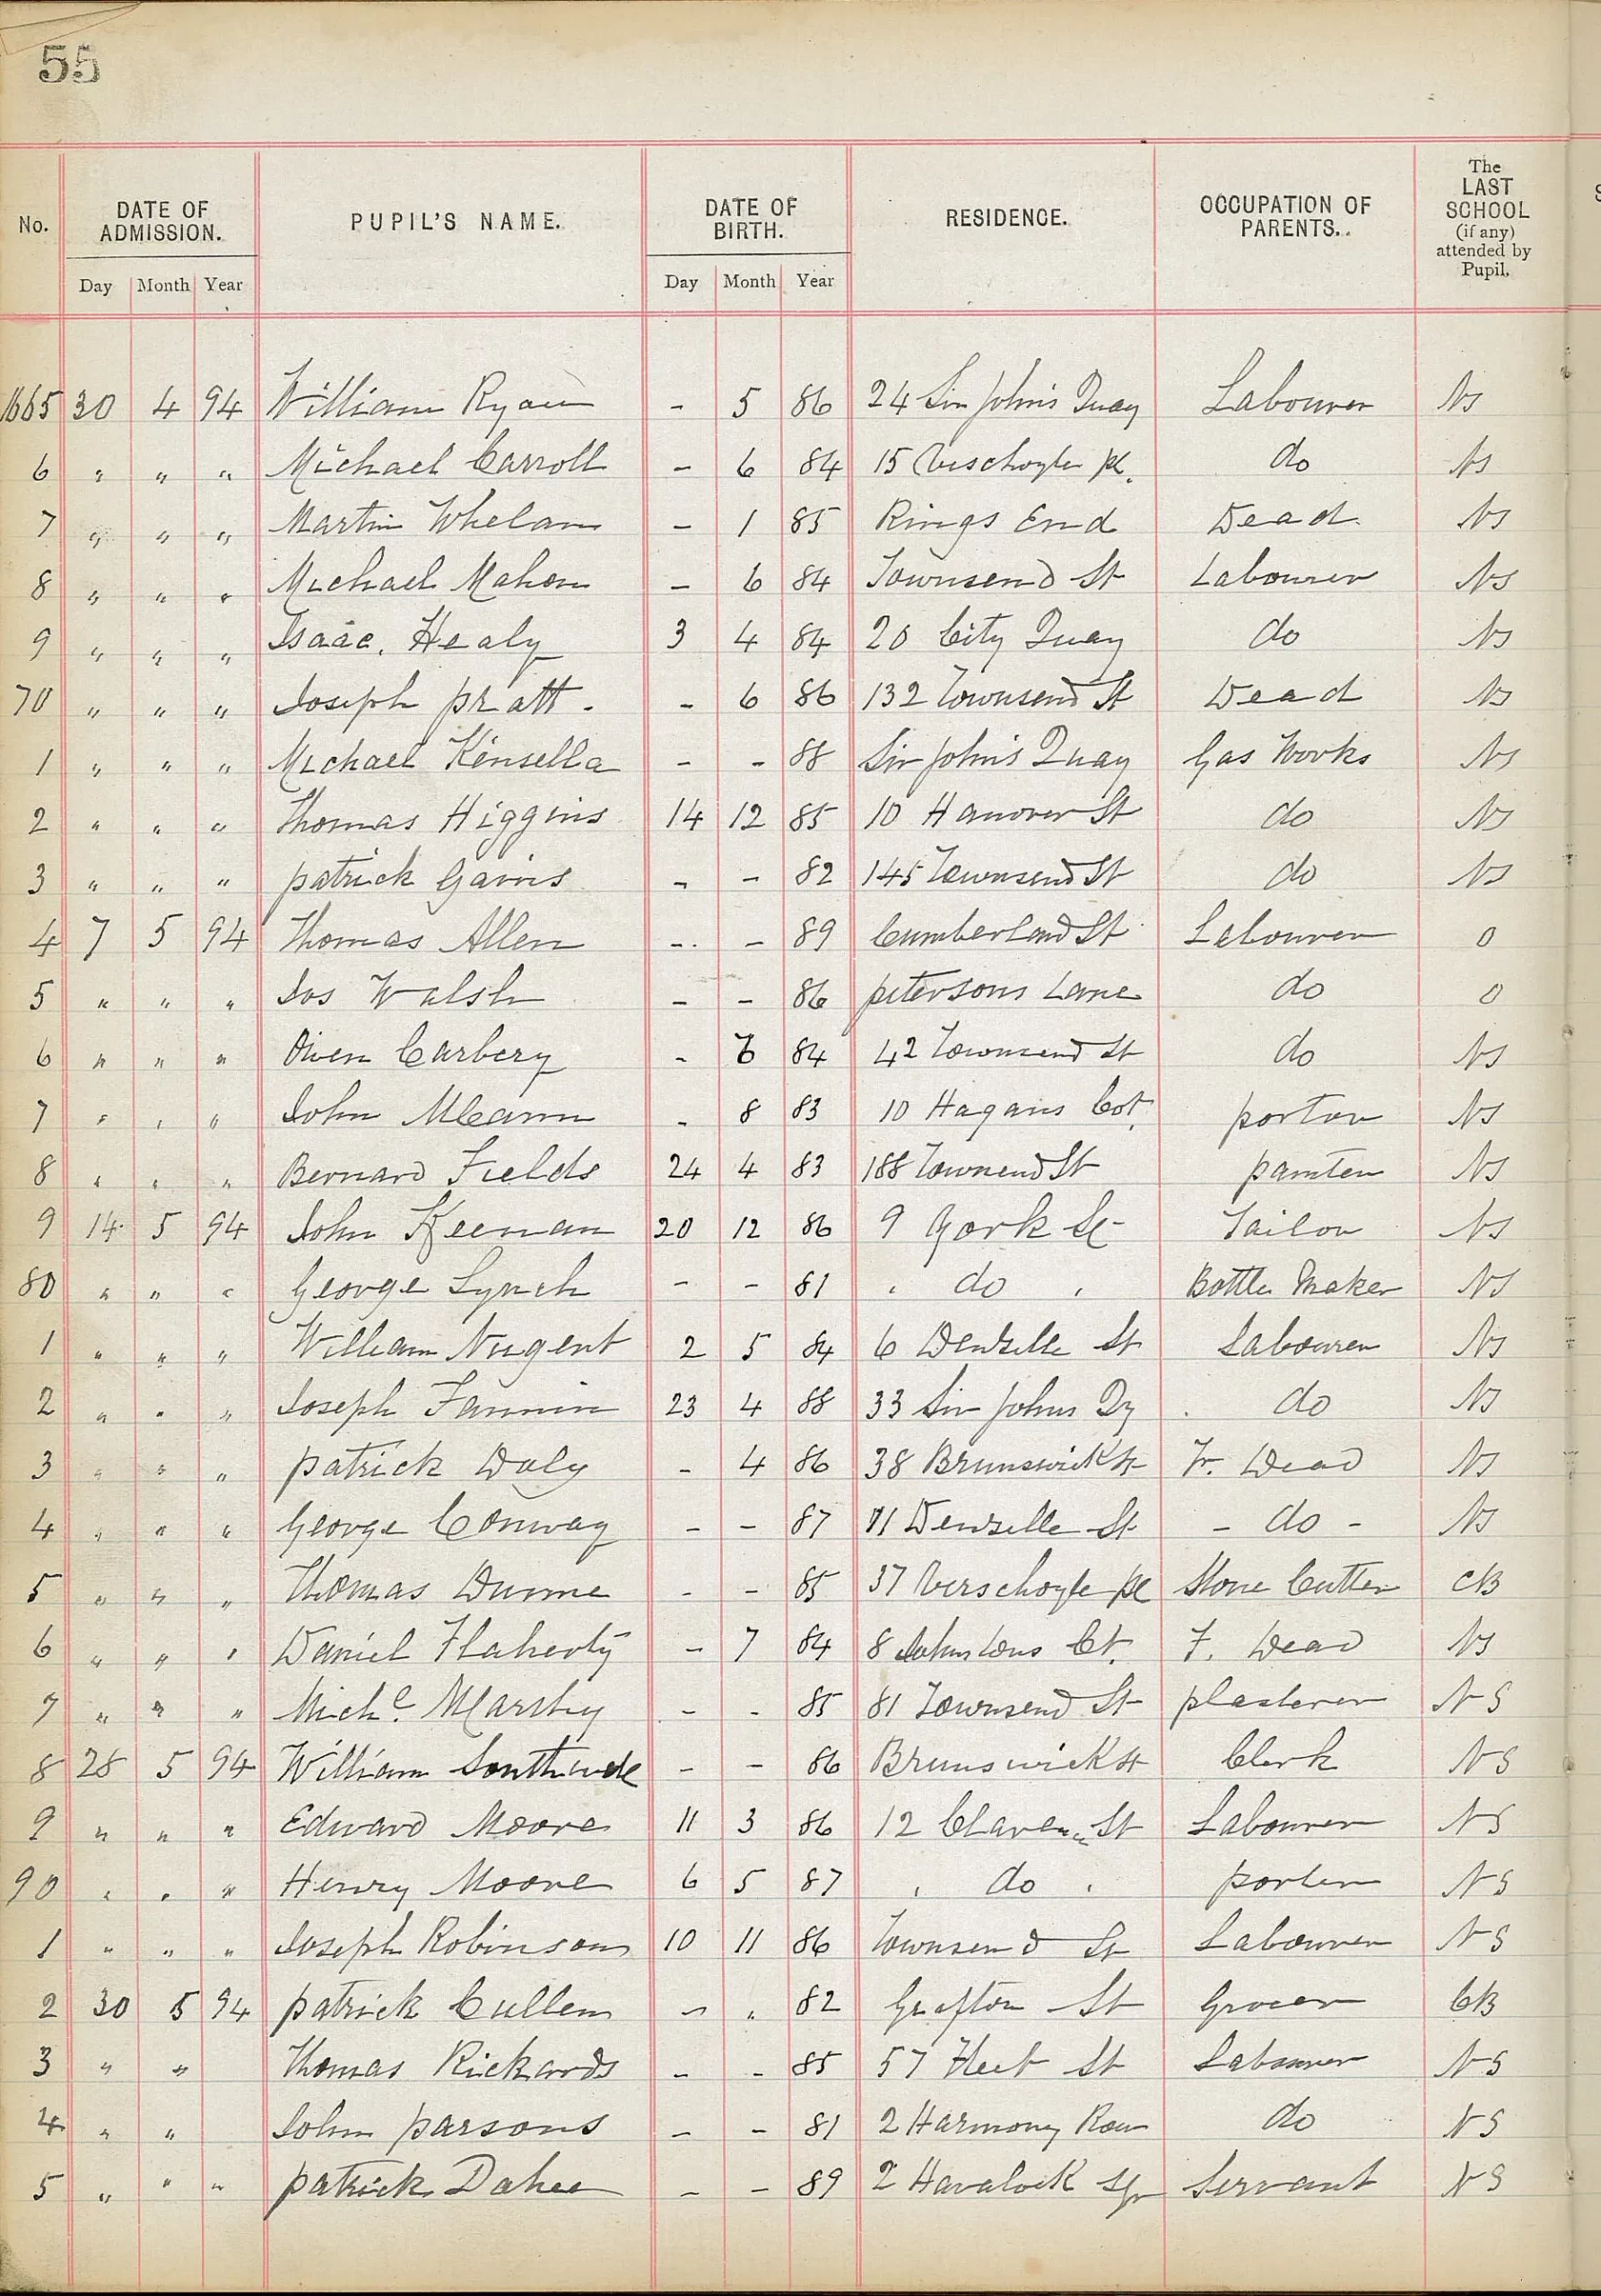 55
No. DATE OF ADMISSION. PUPIL'S NAME. DATE OF BIRTH. RESIDENCE. OCCUPATION OF PARENTS. The LAST SCHOOL (if any) attended by Pupil.
Day Month Year Day Month Year
1665 30 4 94 William Ryan - 5 86 24 Sir John's Quay Labourer NS
6 " " " Michael Carroll - 6 84 15 Verschoyle pl. do NS
7 " " " Martin Whelan - 1 85 Rings End Dead NS
8 " " " Michael Mahon - 6 84 Townsend St Labourer NS
9 " " " Isaac Healy 3 4 84 20 City Quay do NS
70 " " " Joseph pratt - 6 86 132 Townsend St Dead NS
1 " " " Michael Kinsella - - 88 Sir John's Quay Gas Works NS
2 " " " Thomas Higgins 14 12 85 10 Hanover St do NS
3 " " " patrick Gavins - - 82 145 Townsend St do NS
4 7 5 94 Thomas Allen - - 89 Cumberland St Labourer 0
5 " " " Jos Walsh - - 86 petersons Lane do 0
6 " " " Owen Carbery - 84 42 Townsend St do NS
7 " " " John McCann - 8 83 10 Hagans Cot. porter NS
8 " " " Bernard Fields 24 4 83 188 Townend St painter NS
9 14 5 94 John Keenan 20 12 86 9 York St Tailor NS
80 " " " George Lynch - - 81 " do " Bottle Maker NS
1 " " " William Nugent 2 5 84 6 Denzille St Labourer NS
2 " " " Joseph Fannin 23 4 88 33 Sir Johns Qy do NS
3 " " " patrick Daly - 4 86 38 Brunswick St Fr. Dead NS
4 " " " George Conway - - 87 Denzille St - do - NS
5 " " " Thomas Dunne - - 85 37 Verschoyle pl Stone Cutter CB
6 " " " Daniel Flaherty - 7 84 8 Johnstons Ct. F. Dead NS
7 " " " Michl - - 85 81 Townsend St plasterer NS
8 28 5 94 William - - 86 Brunswick St Clerk NS
9 " " " Edward Moore 11 3 86 12 Clarence St Labourer NS
90 " " " Henry Moore 6 5 87 " do " porter NS
1 " " " Joseph Robinson 10 11 86 Townsend St Labourer NS
2 30 5 94 patrick Cullen - " 82 Grafton St Grocer CB
3 " " Thomas Rickards - - 85 57 Fleet St Labourer NS
4 " " John parsons - - 81 2 Harmony Row do NS
5 " " " patrick - - 89 2 Havalock Sqr Servant NS